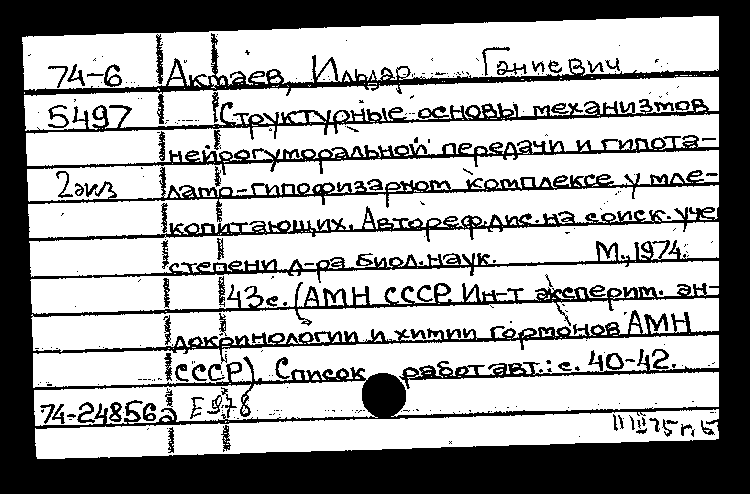 74-6 Актаев, Ильдар Ганиевич
5497 Структурные основы механизмов
нейрогуморальной передачи и гипота-
2 экз ламо-гипофизарном комплексе у мле-
копитающих. Автореф.дис.на соиск.учен
степени д-ра биол.наук. М.,1974.
43с. (АМН СССР. Ин-т эксперим. эн-
докринологии и химии гормонов АМН
СССР). Список работ авт.: с. 40-42.
74-24856а Е978